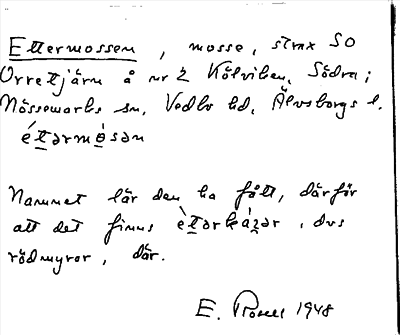 Ettermossen, mosse, strax SO
Orretjärn å nr 2 Kölviken, Södra;
Nössemarks sn, Vedbo hd, Älvsborgs l.
étərmòsən
Namnet lär den ha fått, därför
att det finns ètərkázər, dvs
rödmyror, där.
E. Rosell 1948